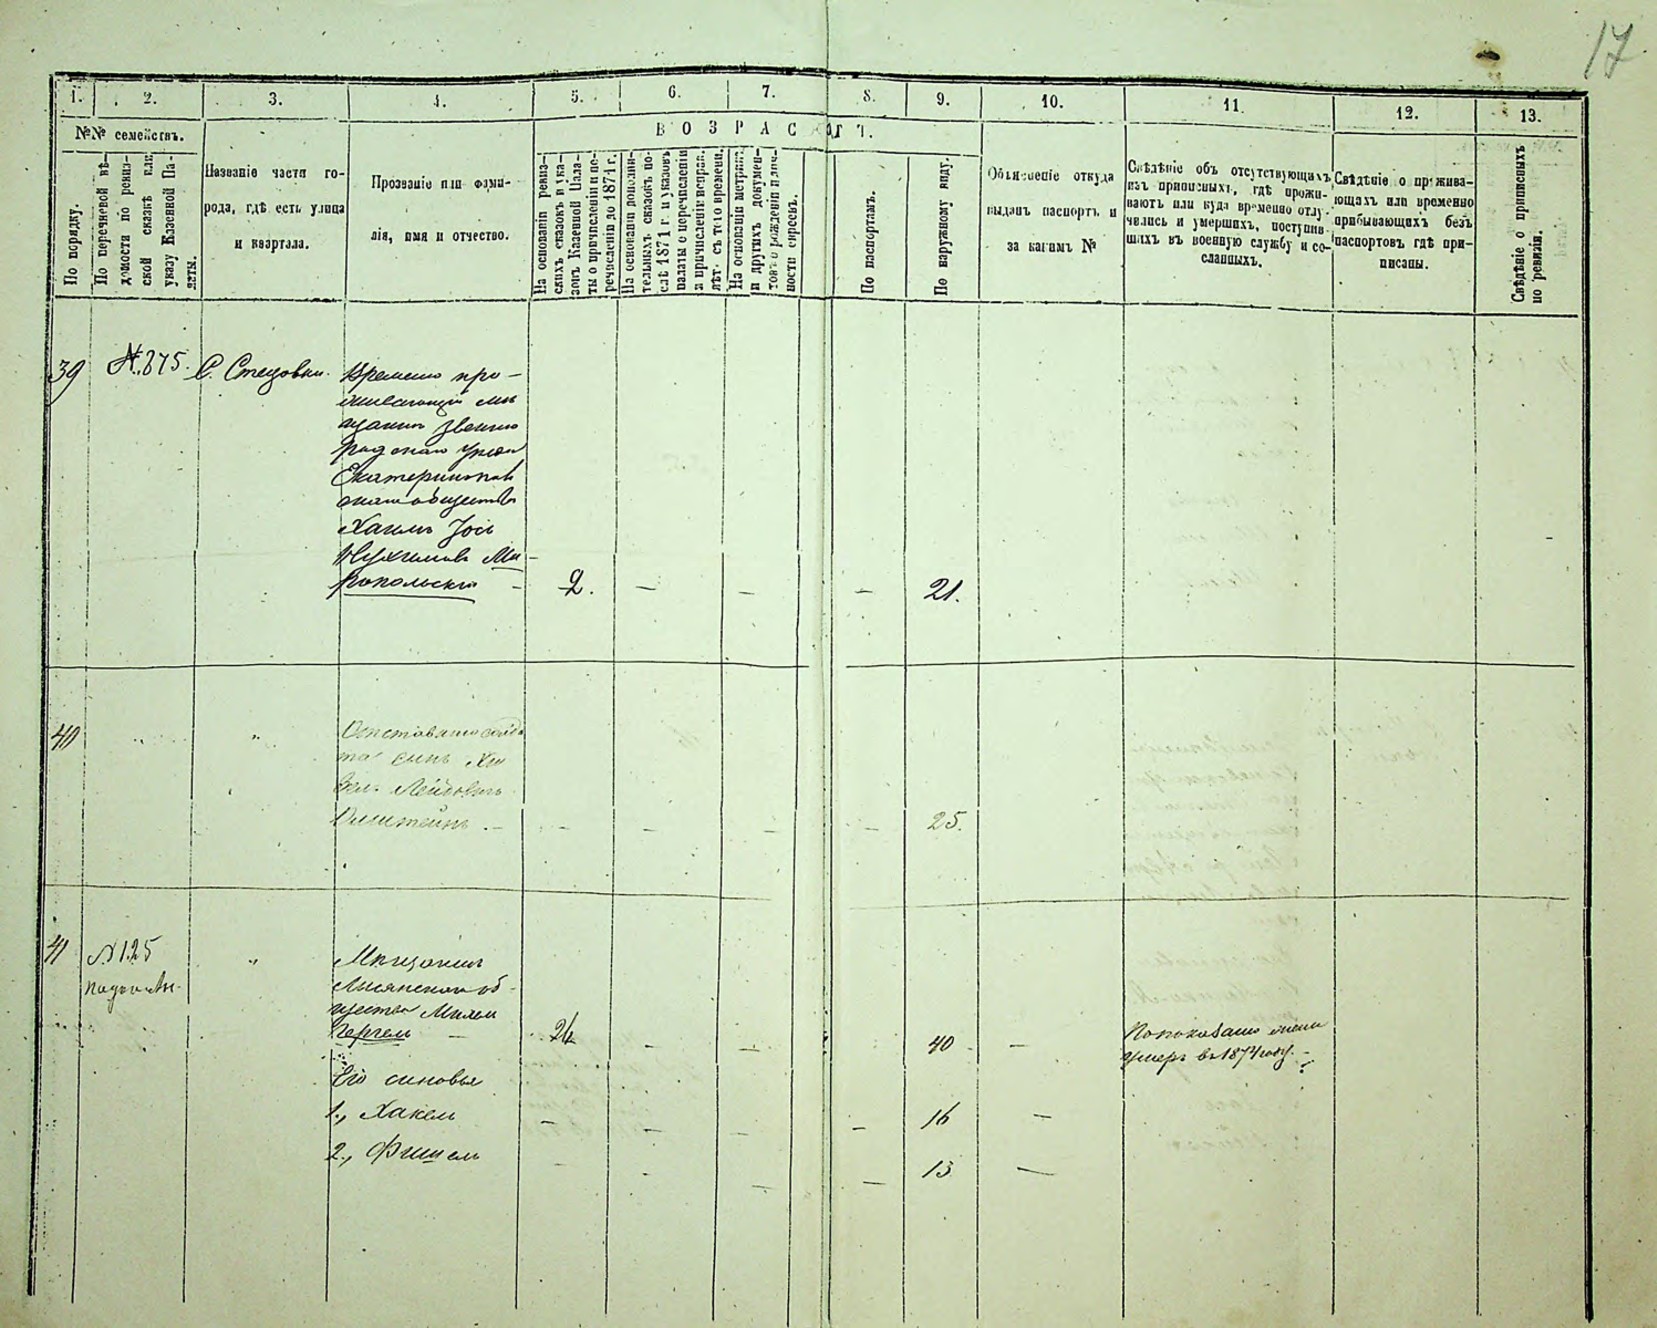 17
1. 2. 3. 4. 5. 6. 7. 8. 9. 10. 11. 12. 13.
№№ семействъ.
ВОЗРАСТ
По порядку.
По перечневой вѣ-
домости по ревиз-
ской сказкѣ или
указу Казенной Па-
латы.
Названіе части го-
рода, гдѣ есть улица
и квартала.
Прозваніе или фами-
лія, имя и отчество.
На основаніи ревиз-
скихъ сказокъ и ука-
зовъ Казенной Пала-
ты о причисленіи и пе-
речисленіи до 1871 г.
На основаніи дополни-
тельныхъ сказокъ по-
слѣ 1871 г. и указовъ
палаты о перечисленіи
и причисленіи исправ.
лѣт. съ того времени.
На основаніи метрик.
и другихъ докумен-
товъ о рожденіи
ности евреевъ.
По паспортамъ.
По наружному виду.
Объясненіе откуда
выданъ паспортъ и
за какимъ №
Свѣдѣніе объ отсутствующихъ
изъ приписныхъ, гдѣ прожи-
ваютъ или куда временно отлу-
чились и умершихъ, поступив-
шихъ въ военную службу и со-
сланныхъ.
Свѣдѣніе о прожива-
ющахъ или временно
прибывающихъ безъ
паспортовъ гдѣ при-
писаны.
Свѣдѣніе о приписныхъ
по ревизіи.
39 №. 875. С. Стецовки. Временно про-
живающій мѣ
щанинъ Звенио
родскаго уѣзда
Екатеринопол
скаго общества
Хаимъ Іось
Нухимовъ Ми-
ропольскій - 2. — — — 21.
40 " " Отставнаго солда
та сынъ
Лейбовичъ
— — — — — 25.
41 №125 " Мѣщанинъ
Лисянскаго об-
щества
Гергель — 24 — — 40 — По показанію
умеръ въ 1874 году. -
Его сыновья
1., Хакель — — — — 16 —
2., Фишель — — — — 13 —